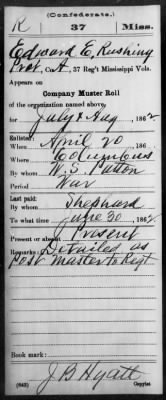 (Confederate.)
R 37 Miss.
Edward E. Rushing
Pvt., Co. A, 37 Reg't Mississippi Vols.
Appears on
Company Muster Roll
of the organization named above,
for July & Aug, 1862
Enlisted:
When April 20, 186
Where Columbus
By whom W. S. Patton
Period War
Last paid:
By whom Shephard
To what time June 30, 1862
Present or absent Present
Remarks: Detailed as
post master to Regt
Book mark:
J B Hyatt
(642) Copyist